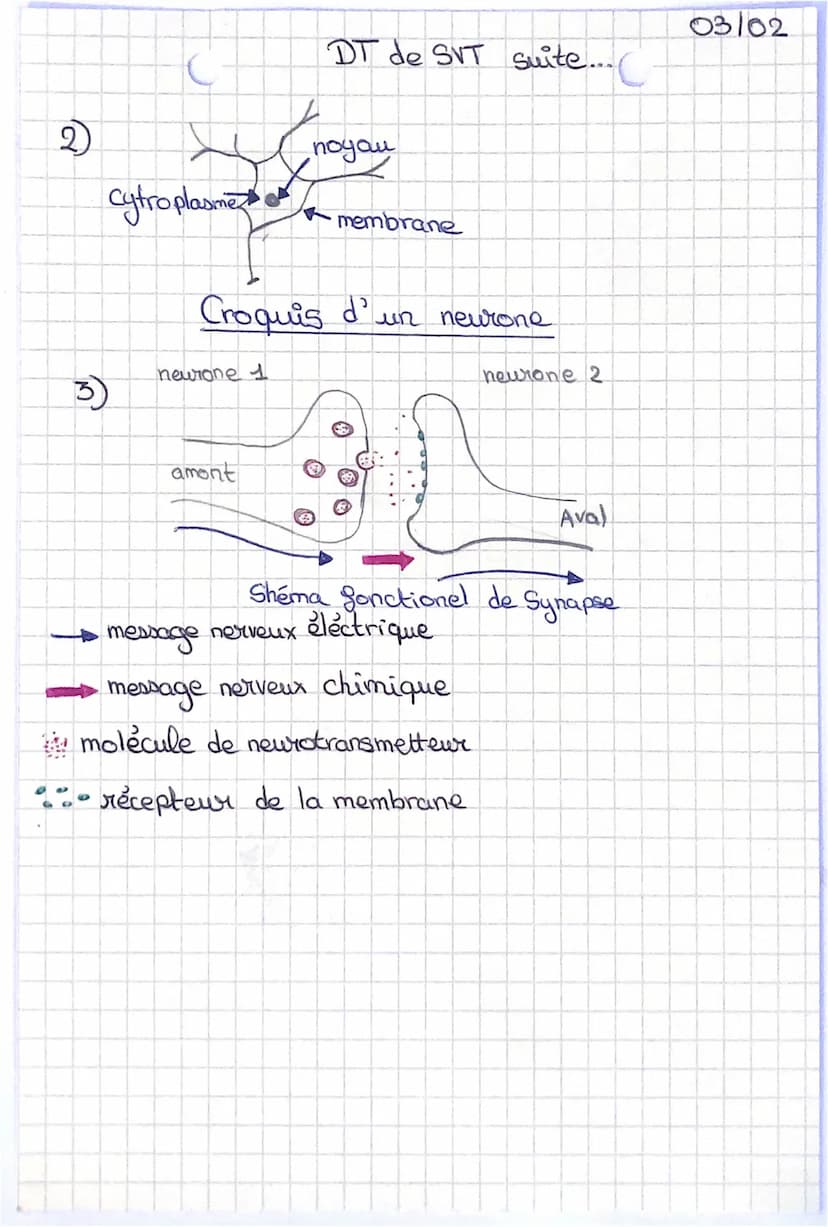 03/02
DT de SVT suite...
2)
noyau
cytroplasme
membrane
Croquis d'un neurone
3)
neurone 1
neurone 2
amont
Aval
Shéma fonctionel de Synapse
message nerveux éléctrique
message nerveux chimique
molécule de neurotransmetteur
récepteur de la membrane